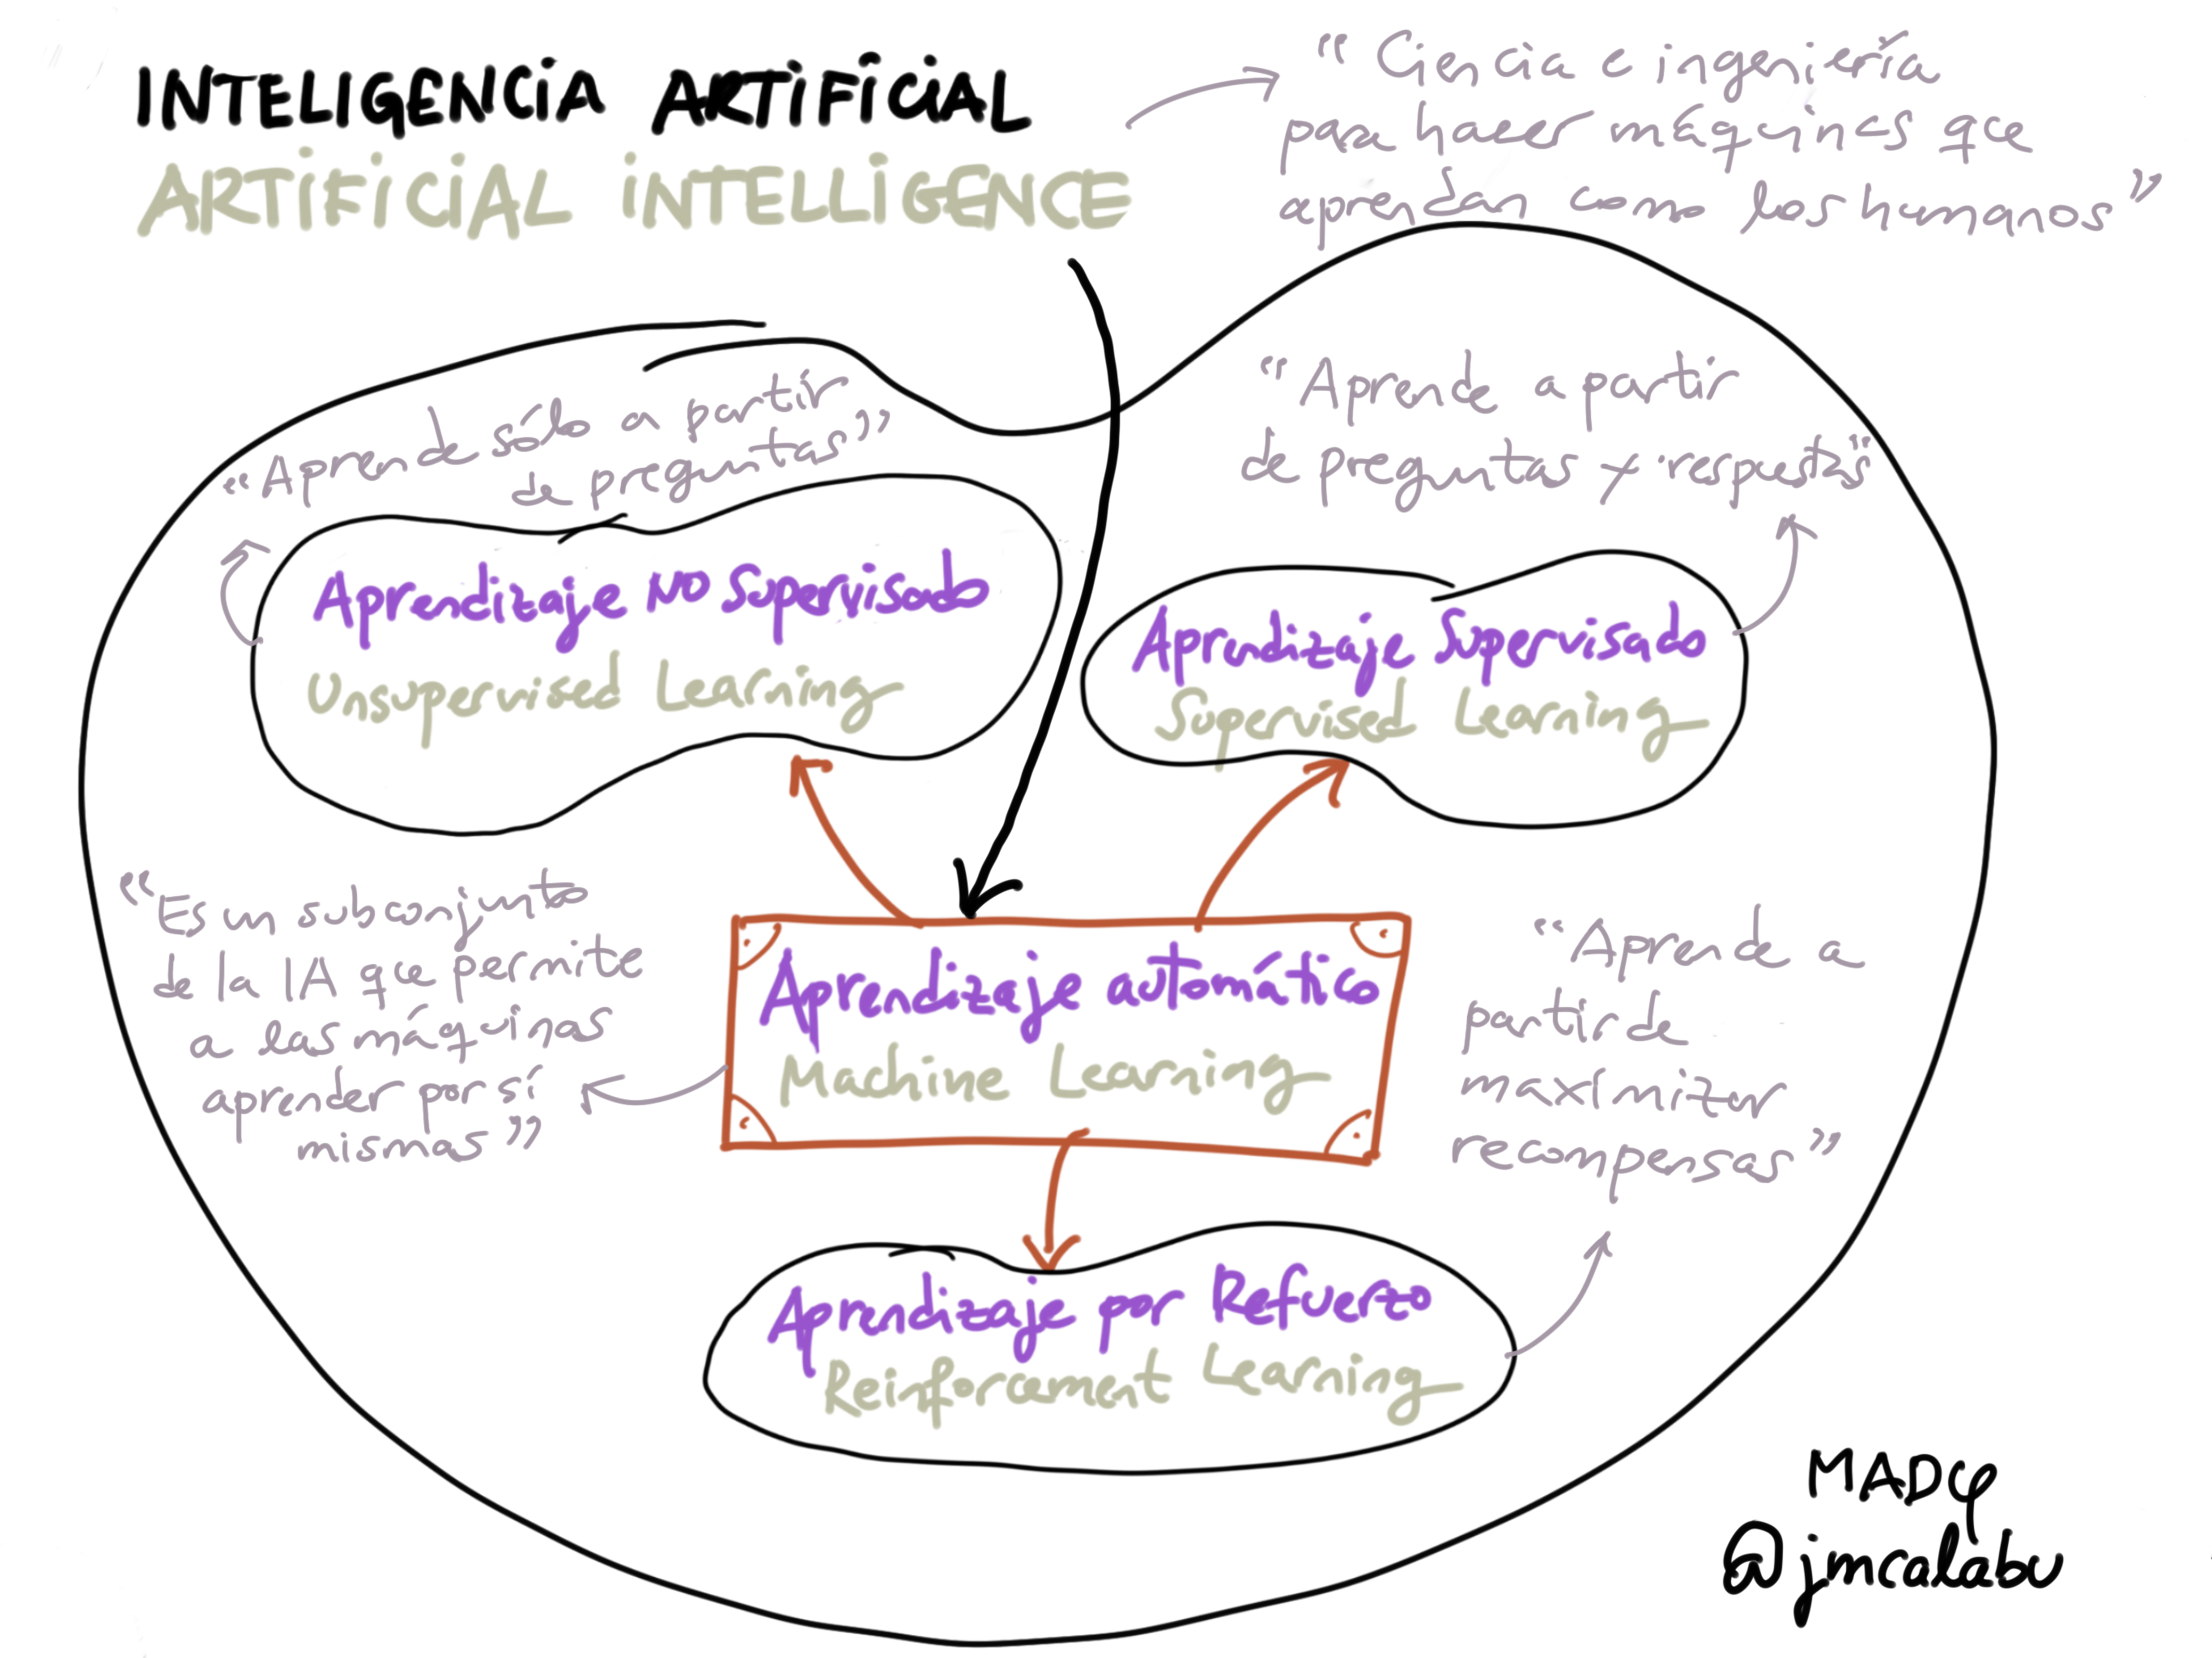 INTELIGENCIA ARTIFICIAL
ARTIFICIAL INTELLIGENCE
“Ciencia e ingeniería
para hacer máquinas que
aprendan como los humanos”
“Aprende sólo a partir
de preguntas”
“Aprende a partir
de preguntas y respuestas”
Aprendizaje NO Supervisado
Unsupervised Learning
Aprendizaje Supervisado
Supervised Learning
“Es un subconjunto
de la IA que permite
a las máquinas
aprender por sí
mismas”
Aprendizaje automático
Machine Learning
“Aprende a
partir de
maximizar
recompensas”
Aprendizaje por Refuerzo
Reinforcement Learning
MADφ
@jmcalabu